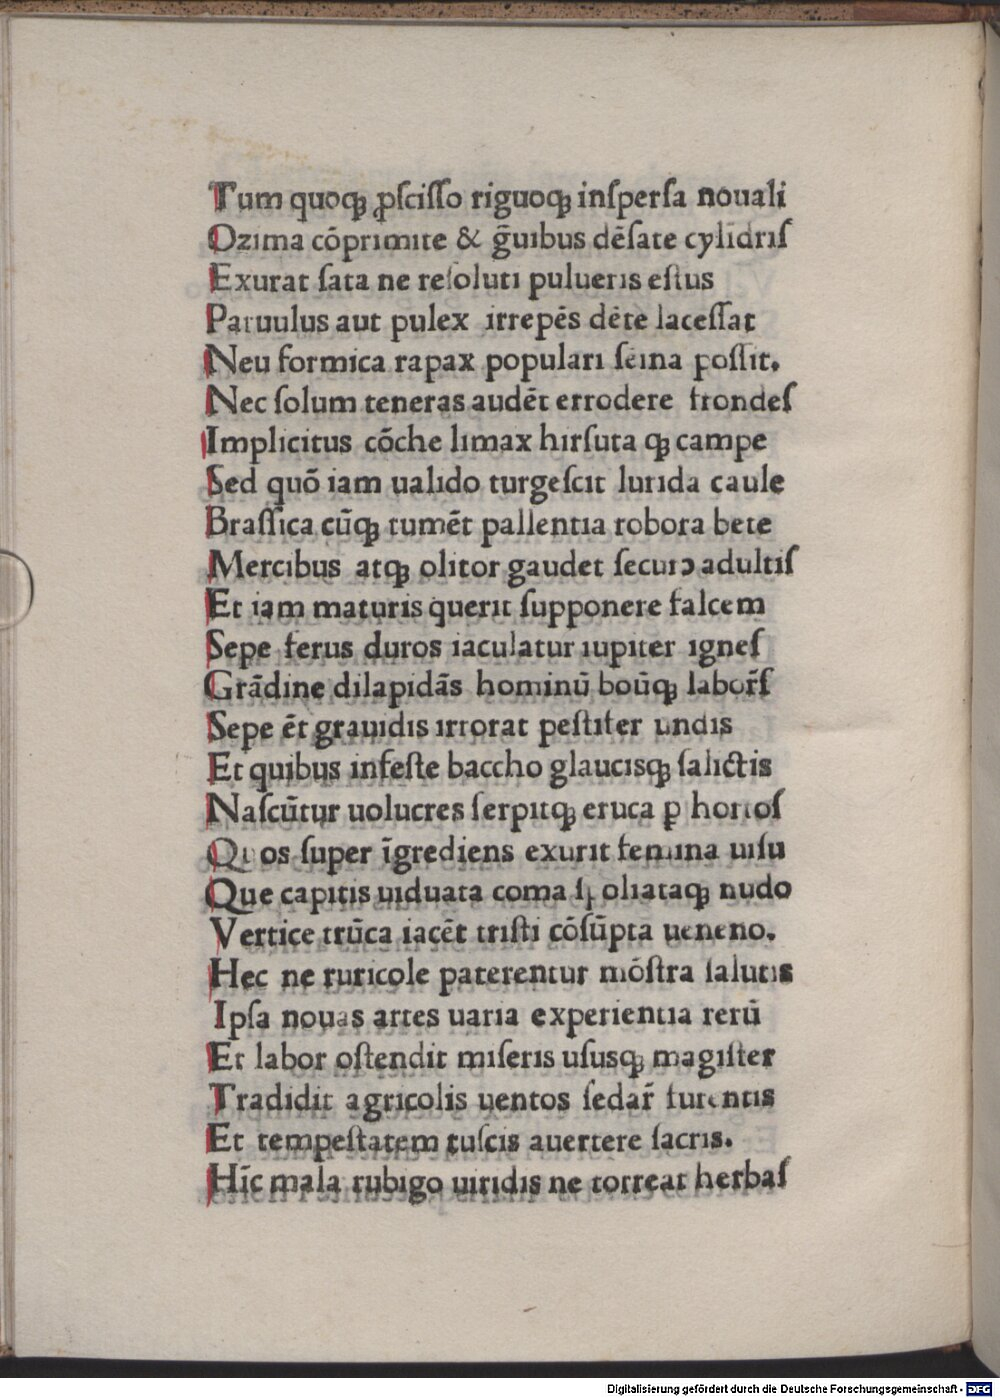 Tum quoqꝫ ꝓſciſſo riguoqꝫ inſperſa nouali
Ozima cōprimite & ḡuibus dēſate cylīdriſ
Exurat ſata ne reſoluti pulueris eſtus
Paruulus aut pulex irrepēs dēte laceſſat
Neu formica rapax populari ſeīna poſſit.
Nec ſolum teneras audēt errodere frondeſ
Implicitus cōche limax hirſuta qꝫ campe
Sed quō iam ualido turgeſcit lurida caule
Braſſica cūqꝫ tumēt pallentia robora bete
Mercibus atqꝫ olitor gaudet ſecurꝰ adultiſ
Et iam maturis querit ſupponere falcem
Sepe ferus duros iaculatur iupiter igneſ
Grādine dilapidās hominū boūqꝫ labor̄ſ
Sepe ēt grauidis irrorat peſtifer undis
Et quibus infeſte baccho glauciſqꝫ ſalictis
Naſcūtur uolucres ſerpitqꝫ eruca ꝑ hortoſ
Quos ſuper īgrediens exurit femina uiſu
Que capitis uiduata coma ſpoliataqꝫ nudo
Vertice trūca iacēt triſti cōſūpta ueneno.
Hec ne ruricole paterentur mōſtra ſalutis
Ipſa nouas artes uaria experientia rerū
Et labor oſtendit miſeris uſusqꝫ magiſter
Tradidit agricolis uentos ſedar̄ furentis
Et tempeſtatem tuſcis auertere ſacris.
Hīc mala rubigo uiridis ne torreat herbaſ
Digitalisierung gefördert durch die Deutsche Forschungsgemeinschaft - DFG